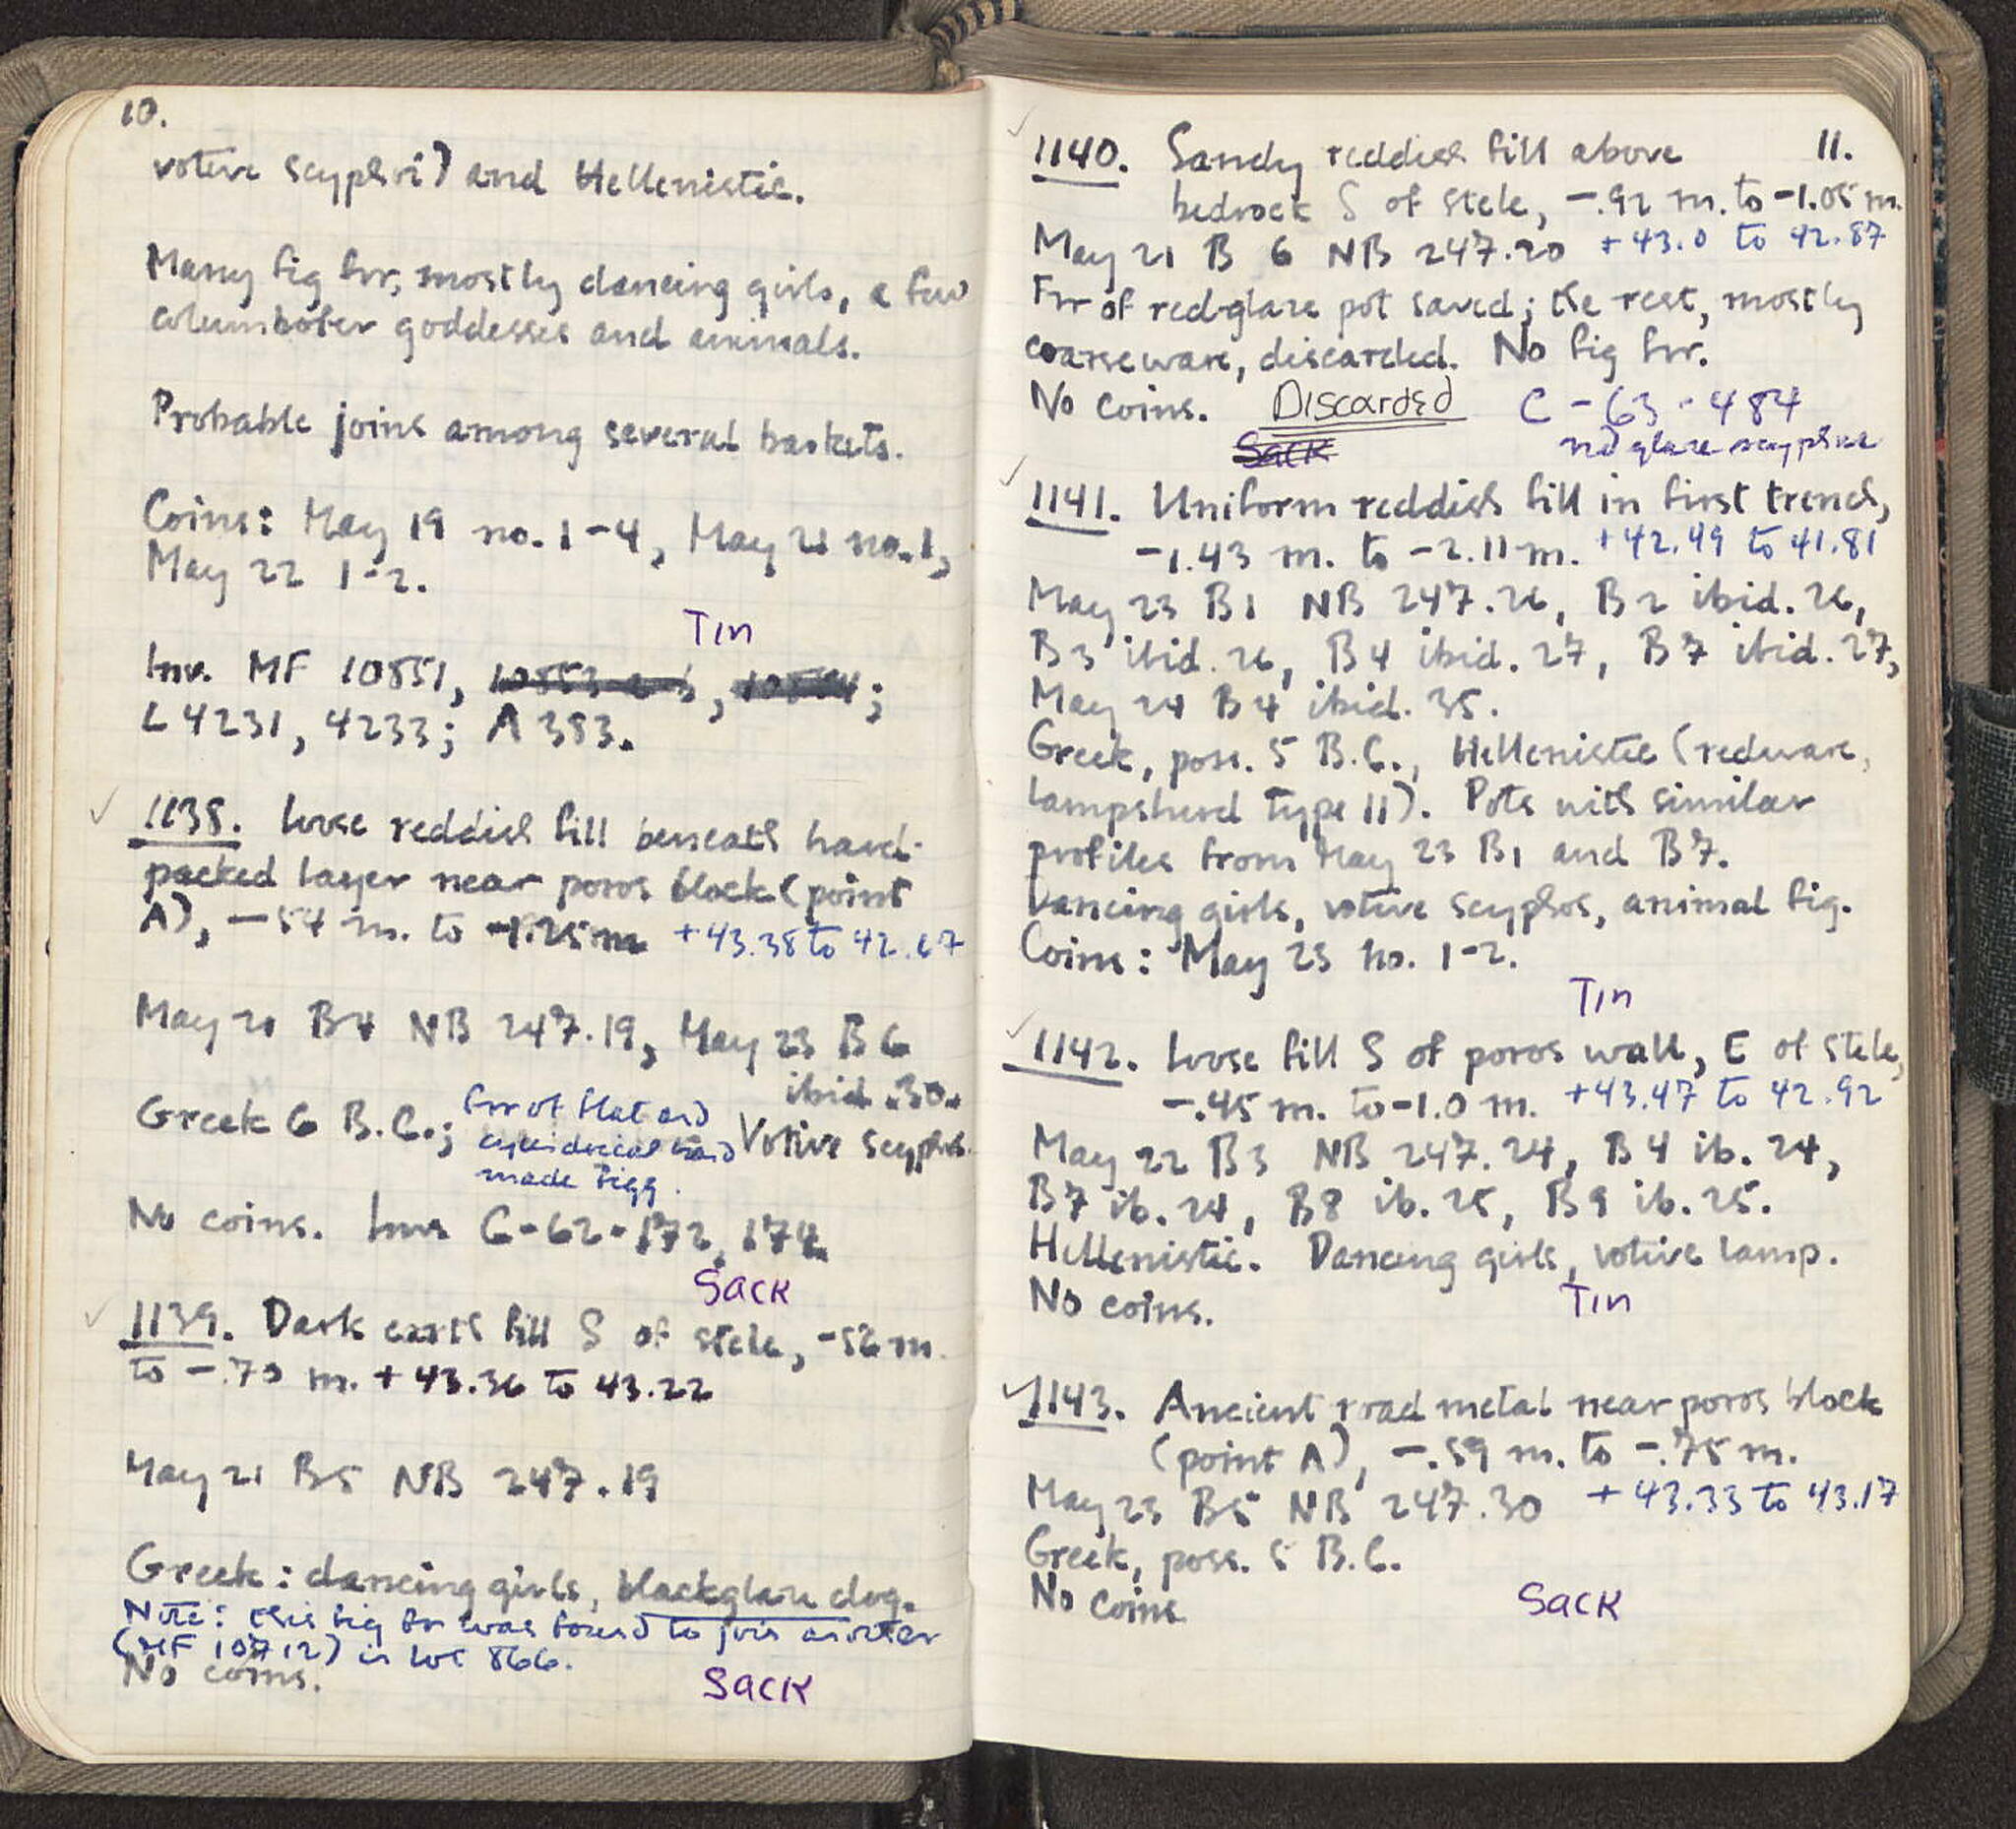 10.
votive scyphoi) and Hellenistic.
Many fig frr, mostly dancing girls, a few
columbofer goddesses and animals.
Probable joins among several baskets.
Coins: May 19 no. 1-4, May 21 no. 1,
May 22 1-2.
Tin
Inv. MF 10851, 10853 a-b, ;
L 4231, 4233; A 383.
1138. Loose reddish fill beneath hard-
packed layer near poros block (point
A), -.54 m. to -1.25 m +43.38 to 42.67
May 21 B4 NB 247.19, May 23 B6
ibid. 30.
Greek 6 B.C.; frr of flat and
cylindrical hand
made figg.
Votive scyphos.
No coins. Inv. C-62-172, 174.
Sack
1139. Dark earth fill S of stele, -.56 m.
to -.70 m. +43.36 to 43.22
May 21 B5 NB 247.19
Greek: dancing girls, blackglaze dog.
Note: this fig fr was found to join another
(MF 10712) in lot 866.
No coins.
Sack
11.
1140. Sandy reddish fill above
bedrock S of stele, -.92 m. to -1.05 m.
May 21 B 6 NB 247.20 +43.0 to 42.87
Frr of redglaze pot saved; the rest, mostly
coarseware, discarded. No fig frr.
No coins. Discarded C-63-484
Sack
red glaze scyphos
1141. Uniform reddish fill in first trench,
-1.43 m. to -2.11 m. +42.49 to 41.81
May 23 B1 NB 247.26, B2 ibid. 26,
B3 ibid. 26, B4 ibid. 27, B7 ibid. 27,
May 24 B4 ibid. 35.
Greek, poss. 5 B.C., Hellenistic (redware,
lampsherd type 11). Pots with similar
profiles from May 23 B1 and B7.
Dancing girls, votive scyphos, animal fig.
Coins: May 23 no. 1-2.
Tin
1142. Loose fill S of poros wall, E of stele,
-.45 m. to -1.0 m. +43.47 to 42.92
May 22 B3 NB 247.24, B4 ib. 24,
B7 ib. 24, B8 ib. 25, B9 ib. 25.
Hellenistic. Dancing girls, votive lamp.
No coins.
Tin
1143. Ancient road metal near poros block
(point A), -.59 m. to -.75 m.
May 23 B5 NB 247.30 +43.33 to 43.17
Greek, poss. 5 B.C.
No coins
Sack